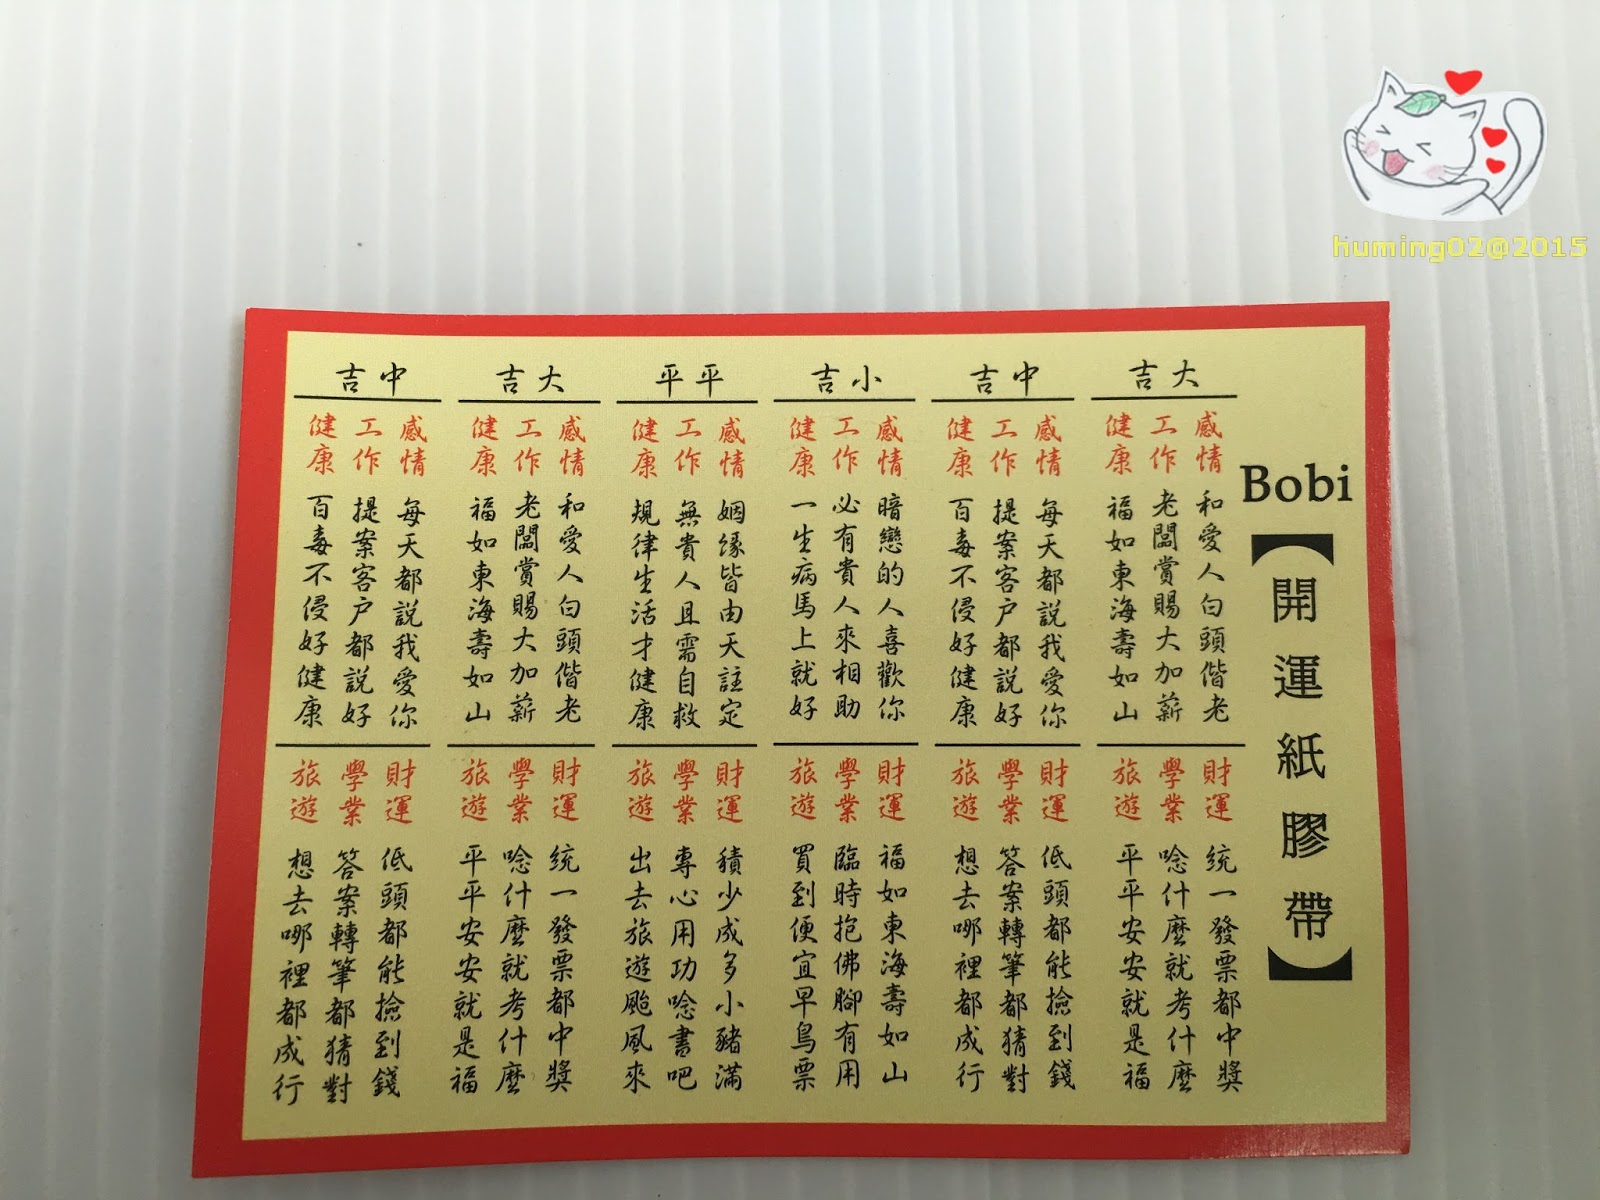 huming02@2015
Bobi
【開運紙膠帶】
大吉
感情
和愛人白頭偕老
工作
老闆賞賜大加薪
健康
福如東海壽如山
財運
統一發票都中獎
學業
唸什麼就考什麼
旅遊
平平安安就是福
中吉
感情
每天都說我愛你
工作
提案客户都說好
健康
百毒不侵好健康
財運
低頭都能撿到錢
學業
答案轉筆都猜對
旅遊
想去哪裡都成行
小吉
感情
暗戀的人喜歡你
工作
必有貴人來相助
健康
一生病馬上就好
財運
福如東海壽如山
學業
臨時抱佛腳有用
旅遊
買到便宜早鳥票
平平
感情
姻緣皆由天註定
工作
無貴人且需自救
健康
規律生活才健康
財運
積少成多小豬滿
學業
專心用功唸書吧
旅遊
出去旅遊颱風來
大吉
感情
和愛人白頭偕老
工作
老闆賞賜大加薪
健康
福如東海壽如山
財運
統一發票都中獎
學業
唸什麼就考什麼
旅遊
平平安安就是福
中吉
感情
每天都說我愛你
工作
提案客户都說好
健康
百毒不侵好健康
財運
低頭都能撿到錢
學業
答案轉筆都猜對
旅遊
想去哪裡都成行